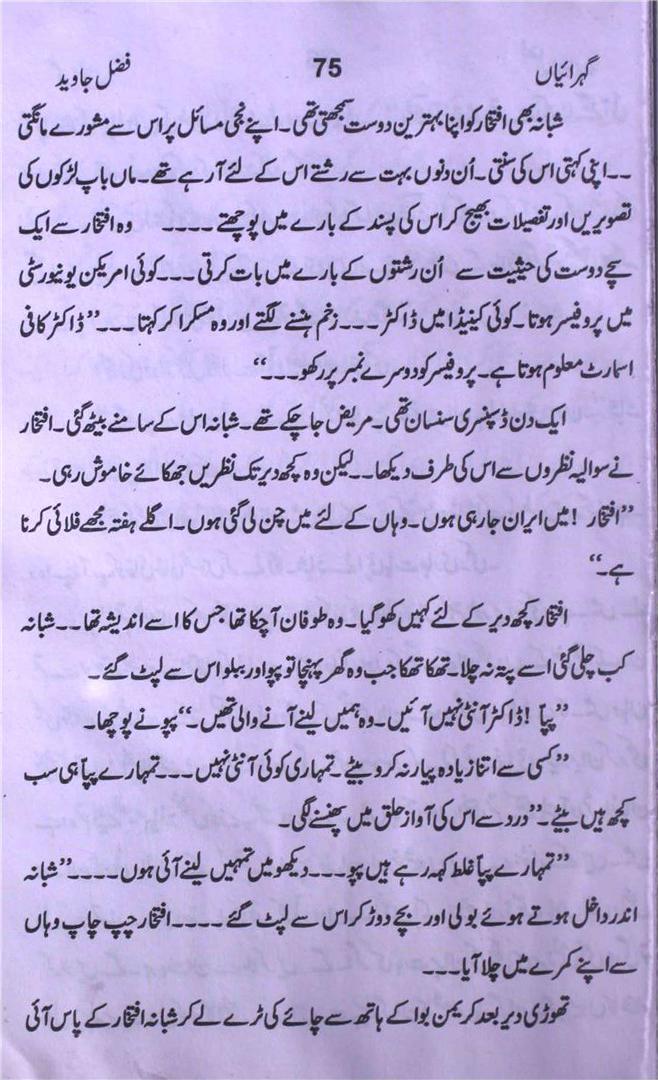 گہرائیاں 75 فضل جاوید
شبانہ بھی افتخار کو اپنا بہترین دوست سمجھتی تھی۔ اپنے نجی مسائل پر اس سے مشورے مانگتی
۔۔ اپنی کہتی اس کی سنتی۔ اُن دنوں بہت سے رشتے اس کے لئے آ رہے تھے۔ ماں باپ لڑکوں کی
تصویریں اور تفصیلات بھیج کر اس کی پسند کے بارے میں پوچھتے ۔۔۔۔ وہ افتخار سے ایک
سچے دوست کی حیثیت سے اُن رشتوں کے بارے میں بات کرتی ۔۔۔ کوئی امریکن یونیورسٹی
میں پروفیسر ہوتا۔ کوئی کینیڈا میں ڈاکٹر ۔۔۔ زخم ہنسنے لگتے اور وہ مسکرا کر کہتا ۔۔۔ ’’ڈاکٹر کافی
اسمارٹ معلوم ہوتا ہے۔ پروفیسر کو دوسرے نمبر پر رکھو۔۔۔‘‘
ایک دن ڈسپنسری سنسان تھی۔ مریض جا چکے تھے۔ شبانہ اس کے سامنے بیٹھ گئی۔ افتخار
نے سوالیہ نظروں سے اس کی طرف دیکھا۔۔ لیکن وہ کچھ دیر تک نظریں جھکائے خاموش رہی۔
’’افتخار! میں ایران جا رہی ہوں۔ وہاں کے لئے میں چن لی گئی ہوں۔ اگلے ہفتہ مجھے فلائی کرنا
ہے۔‘‘
افتخار کچھ دیر کے لئے کہیں کھو گیا۔ وہ طوفان آ چکا تھا جس کا اسے اندیشہ تھا۔۔ شبانہ
کب چلی گئی اسے پتہ نہ چلا۔ تھکا تھکا جب وہ گھر پہنچا تو پپو اور ببلو اس سے لپٹ گئے۔
’’پپا! ڈاکٹر آنٹی نہیں آئیں۔ وہ ہمیں لینے آنے والی تھیں۔‘‘ پپو نے پوچھا۔
’’کسی سے اتنا زیادہ پیار نہ کرو بیٹے۔ تمہاری کوئی آنٹی نہیں ۔۔۔ تمہارے پپا ہی سب
کچھ ہیں بیٹے۔‘‘ درد سے اس کی آواز حلق میں پھنسنے لگی۔
’’تمہارے پپا غلط کہہ رہے ہیں پپو ۔۔۔ دیکھو میں تمہیں لینے آئی ہوں۔۔۔۔‘‘ شبانہ
اندر داخل ہوتے ہوئے بولی اور بچے دوڑ کر اس سے لپٹ گئے ۔۔۔۔ افتخار چپ چاپ وہاں
سے اپنے کمرے میں چلا آیا۔۔۔
تھوڑی دیر بعد کریمن بوا کے ہاتھ سے چائے کی ٹرے لے کر شبانہ افتخار کے پاس آئی